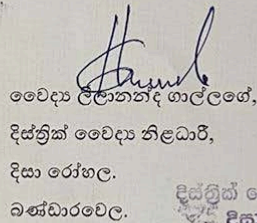 වෛද්‍ය ලීලානන්ද ගාල්ලගේ,
දිස්ත්‍රික් වෛද්‍ය නිළධාරී,
දිසා රෝහල.
බණ්ඩාරවෙල.
දිස්ත්‍රික්